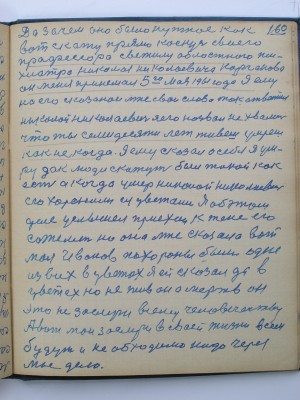 160
Да зачем оно было нужное как
вот скажу прямо коснусь своего
профессора светилу областного пси-
хиатра николай николаевич Корганова
он меня принимал 5го мая 1961 года я ему
на его сказаное тже свои слова так ответил
николай николаевич его назвал не хвали
что ты семидесяти лет живеш умреш
как не когда. Я ему сказал о себе я ум-
ру дак люди скажут был такой как
есть а когда умер николай николаевич
схоронили и с цветами Я об этом
деле услышел приехал к жене его
сожелел но она мне сказала вот
мол Иванов похороны были одне
из всех в цветах Я ей сказал да в
цветах но не жив он а мертв он
это не заслуги всему человечеству
А вот мои заслуги в своей жизни всем
будут и необходимо надо через
мое дело.